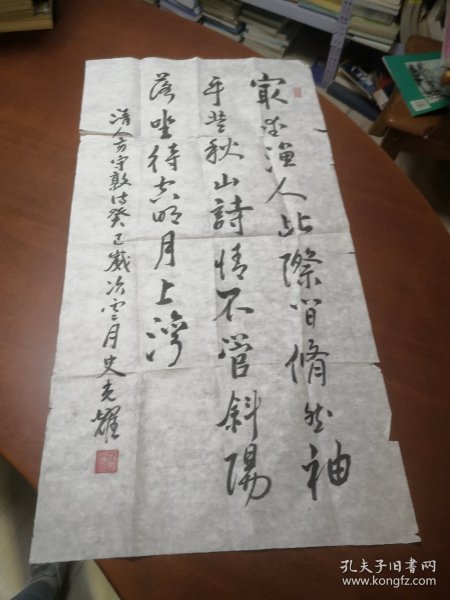 最愛漁人此際閒翛然袖
手秋山詩情不管斜陽
落坐待空明月上灣
清人方守敦詩癸巳歲次雪月史光耀
孔夫子旧书网
www.kongfz.com